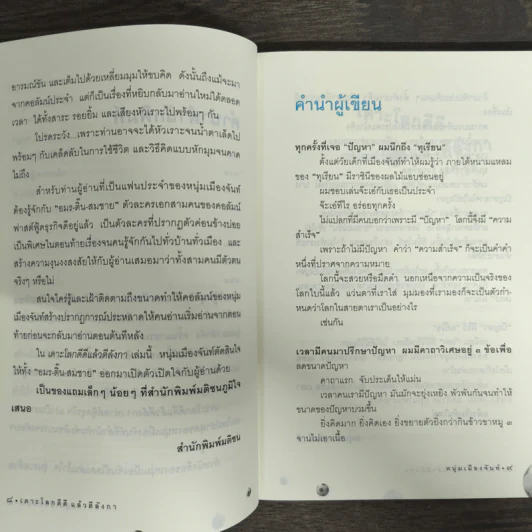 อารมณ์ขัน และเต็มไปด้วยเหลี่ยมมุมให้ขบคิด ดังนั้นถึงแม้จะมา
จากคอลัมน์ประจำ แต่ก็เป็นเรื่องที่หยิบกลับมาอ่านใหม่ได้ตลอด
เวลา ได้ทั้งสาระ รอยยิ้ม และเสียงหัวเราะไปพร้อมๆ กัน
โปรดระวัง...เพราะท่านอาจจะได้หัวเราะจนน้ำตาเล็ดไป
พร้อมๆ กับเคล็ดลับในการใช้ชีวิต และวิธีคิดแบบหักมุมจนคาด
ไม่ถึง
สำหรับท่านผู้อ่านที่เป็นแฟนประจำของหนุ่มเมืองจันท์
ต้องรู้จักกับ "อมร-ติ๋ม-สมชาย" ตัวละครเอกสามคนของคอลัมน์
ฟาสต์ฟู้ดธุรกิจดีอยู่แล้ว เป็นตัวละครที่ปรากฏตัวค่อนข้างบ่อย
เป็นพิเศษในตอนท้ายเรื่องจนคนรู้จักกันไปทั่วบ้านทั่วเมือง และ
สร้างความงุนงงสงสัยให้กับผู้อ่านเสมอมาว่าทั้งสามคนมีตัวตน
จริงๆ หรือไม่
สนใจใคร่รู้และเฝ้าติดตามถึงขนาดทำให้คอลัมน์ของหนุ่ม
เมืองจันท์สร้างปรากฏการณ์ประหลาดให้คนอ่านเริ่มอ่านจากตอน
ท้ายก่อนจะกลับมาอ่านตอนต้นทีหลัง
ใน เคาะโลกดีดีแล้วตีลังกา เล่มนี้ หนุ่มเมืองจันท์ตัดสินใจ
ให้ทั้ง "อมร-ติ๋ม-สมชาย" ออกมาเปิดตัวเปิดใจกับผู้อ่านด้วย
เป็นของแถมเล็กๆ น้อยๆ ที่สำนักพิมพ์มติชนภูมิใจ
เสนอ
สำนักพิมพ์มติชน
๘ • เคาะโลกดีดี แล้วตีลังกา
คำนำผู้เขียน
ทุกครั้งที่เจอ "ปัญหา" ผมนึกถึง "ทุเรียน"
ตั้งแต่วัยเด็กที่เมืองจันท์ทำให้ผมรู้ว่า ภายใต้หนามแหลม
ของ "ทุเรียน" มีราชินีของผลไม้แอบซ่อนอยู่
ผมชอบเล่นจ๊ะเอ๋กับเธอเป็นประจำ
จ๊ะเอ๋ทีไร อร่อยทุกครั้ง
ไม่แปลกที่มีคนบอกว่าเพราะมี "ปัญหา" โลกนี้จึงมี "ความ
สำเร็จ"
เพราะถ้าไม่มีปัญหา คำว่า "ความสำเร็จ" ก็จะเป็นคำคำ
หนึ่งที่ปราศจากความหมาย
โลกนี้จะสวยหรือมืดดำ นอกเหนือจากความเป็นจริงของ
โลกใบนี้แล้ว แว่นตาที่เราใส่ มุมมองที่เรามองก็จะเป็นตัวกำ-
หนดว่าโลกในสายตาเราเป็นอย่างไร
เช่นกัน
เวลามีคนมาปรึกษาปัญหา ผมมีคาถาวิเศษอยู่ ๓ ข้อเพื่อ
ลดขนาดปัญหา
คาถาแรก จับประเด็นให้แม่น
เวลาคนเรามีปัญหา มันมักจะยุ่งเหยิง พัวพันกันจนทำให้
ขนาดของปัญหาบวมขึ้น
ยิ่งคิดมาก ยิ่งคิดเอง ยิ่งขยายตัวยิ่งกว่ากินข้าวขาหมู ๓
จานไม่เอาเนื้อ
หนุ่มเมืองจันท์ • ๙